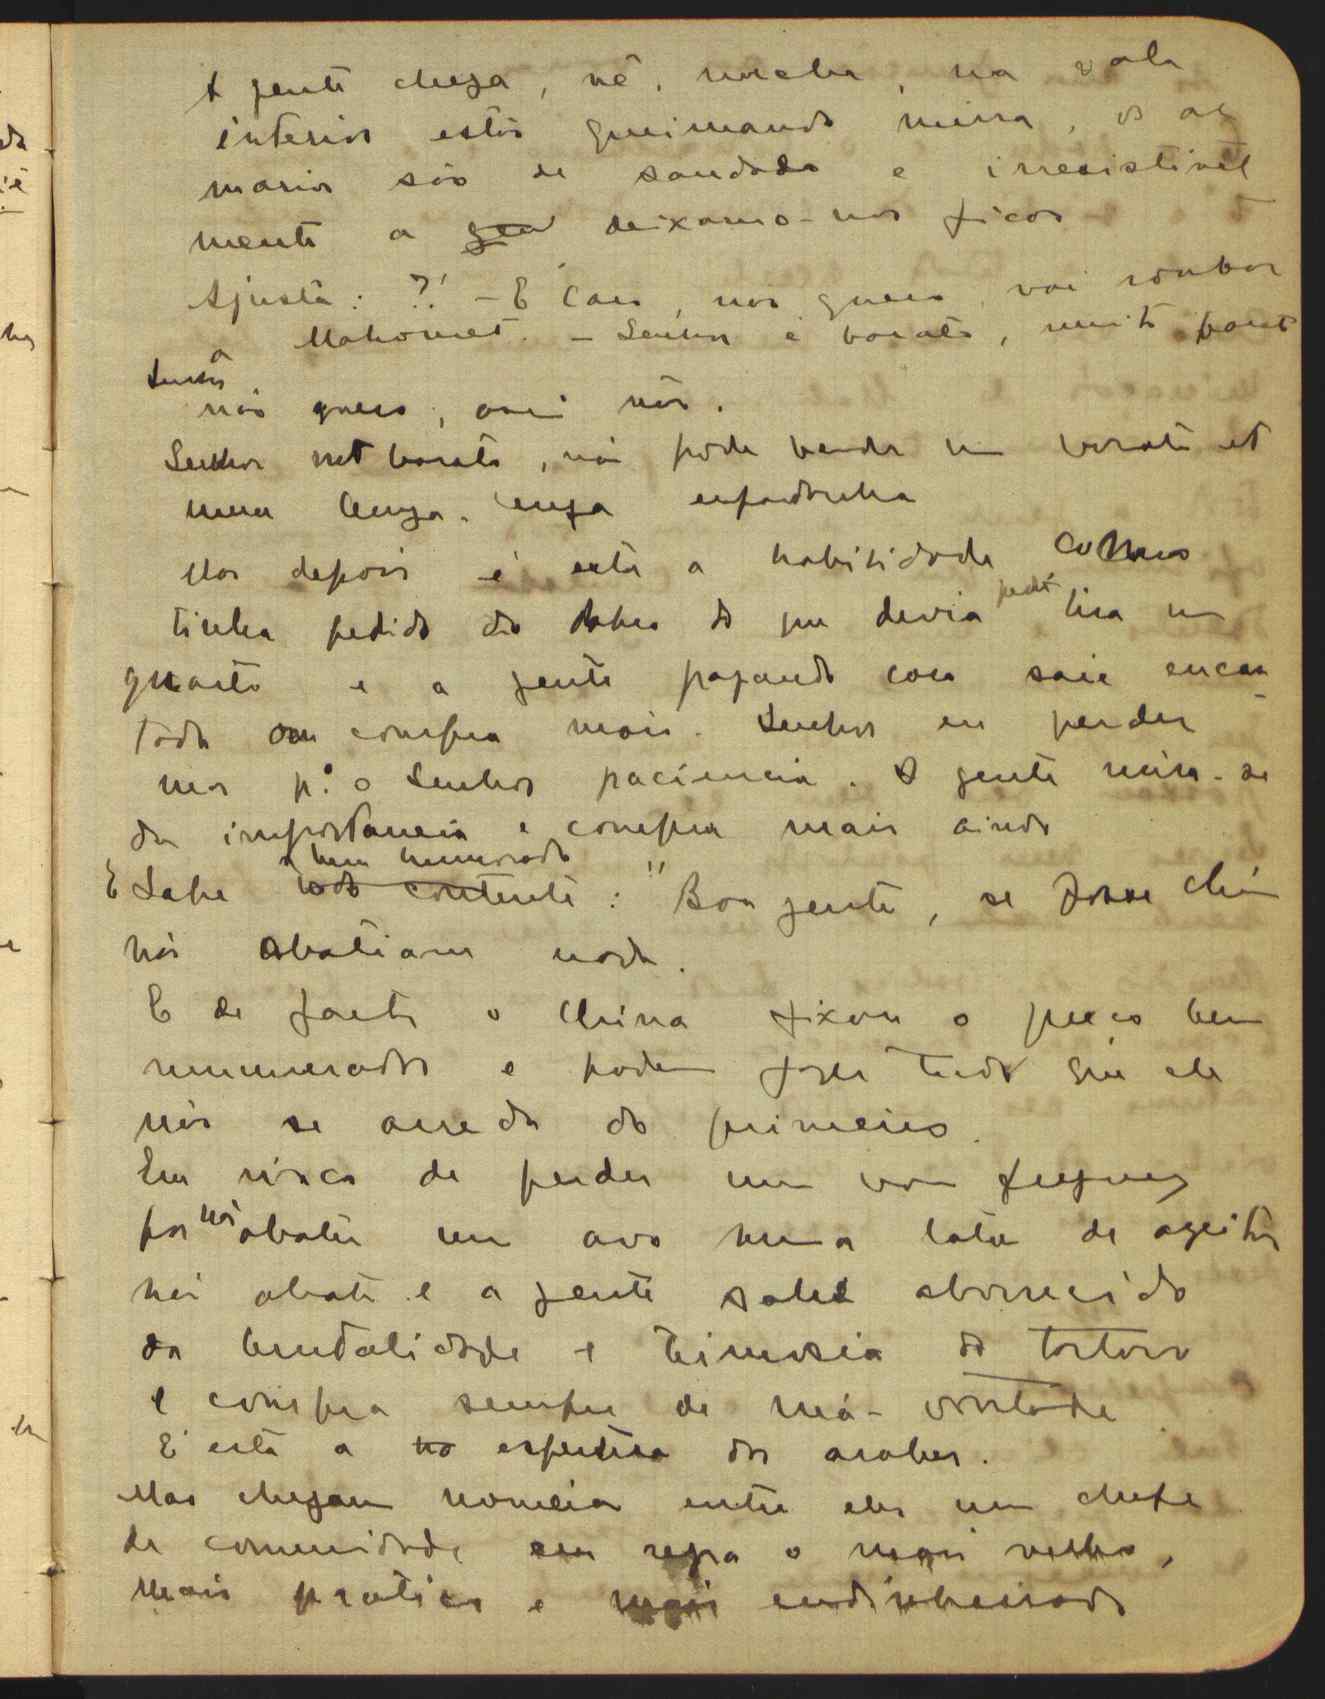 A gente chega, vê, recebe, na sala
interior estão queimando mirra, os ar
marios são de sandalo e irresistivel
mente a deixamo-nos ficar
Ajusta: ?! – E caro, não quero, vai roubar
Mahomet. – Senhor é barato, muito barat
Senhor a
não quero, assim não.
Senhor not barato, não pode vender um barato et
uma lenga lenga enfadonha
Mas depois é esta a habilidade, como
tinha pedido do dobro do que devia pedir tira um
quarto e a gente pagando caro saie encan
tado compra mais. Senhor eu perder
mas p.a o Senhor paciencia. A gente mira-se
da importancia e compra mais ainda
E Sahe todo contente bem humorado: "Boa gente, se fosse China
não abatiam nada.
E de facto o China fixou o preco bem
remunerador e podem fazer tudo que ele
não se arreda do primeiro.
Em risco de perder um bom freguez
por não abater um avo numa lata de azeite
não abate e a gente sahe aborrecido
da brutalidade e teimosia do tartaro
e compra sempre de má-vontade
E' esta a esperteza dos arabes.
Mas chegam nomeia entre eles um chefe
de comunidade em regra o mais velho,
mais pratico e mais endinheirado